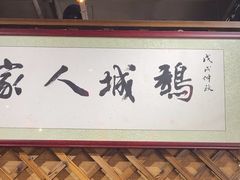 鵝城人家
戊戌仲秋